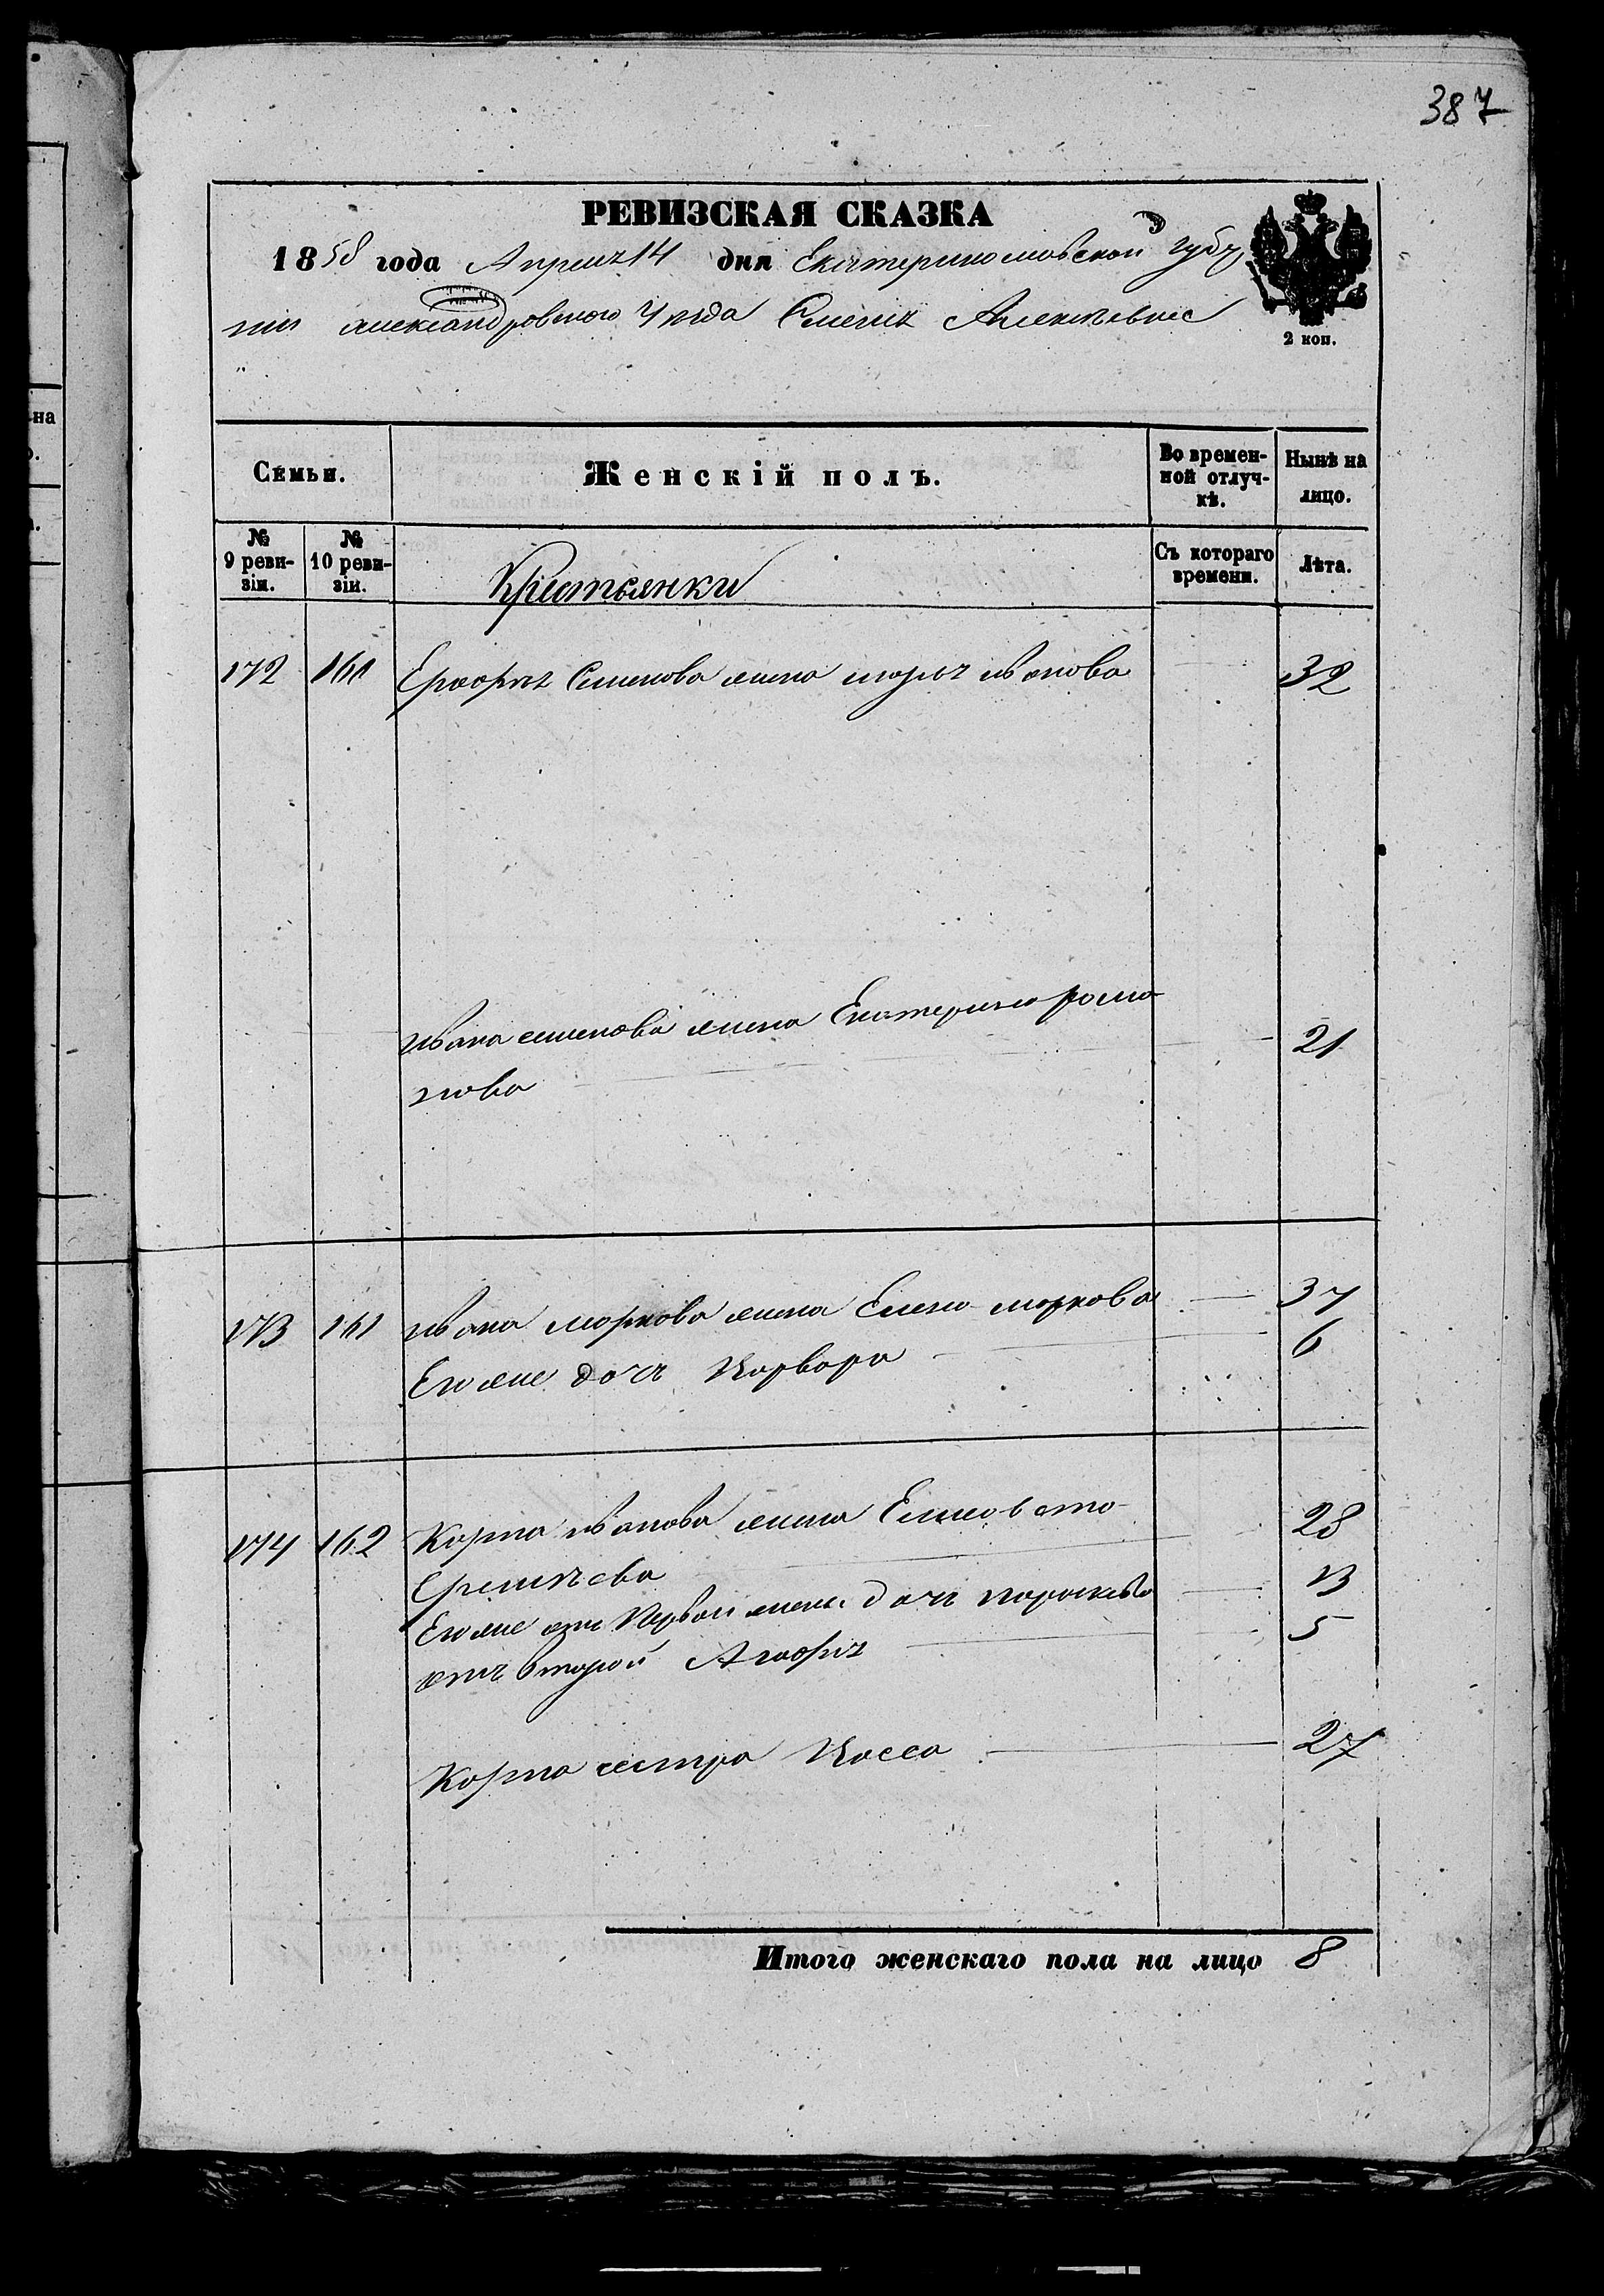 387
РЕВИЗСКАЯ СКАЗКА
1858 года Апреля 14 дня Екатеринославской губер
нии александровского уезда Алексеевке
2 коп.
Семьи.
Женскій полъ.
Во времен-
ной отлуч-
кѣ.
Нынѣ на
лицо.
№
9 реви-
зіи.
№
10 реви-
зіи.
Кристьянки
Съ котораго
времени.
Лѣта.
172 161 Семенова жена иванова 32
ивана семенова жена Екатерина рома 21
нова
173 161 ивана маркова жена Елена маркова 37
Его же дочь Варвара 6
174 162 Карпа иванова жена Елисавета 28
Еремеева
Его же отъ Первой жены дочь парасква 13
отъ второй 5
Карпа сестра Васса 27
Итого женскаго пола на лицо 8
на